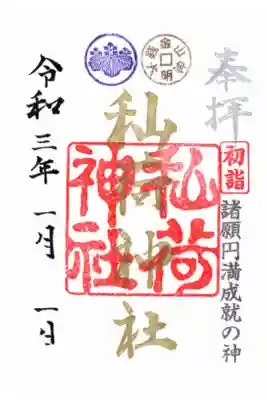 奉拝
初詣
諸願円満成就の神
神社
荷
神社
令和三年一月一日